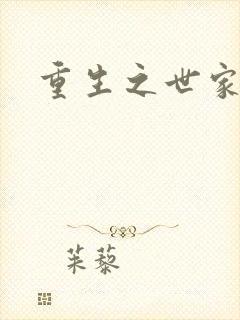 重生之世家
茱藜